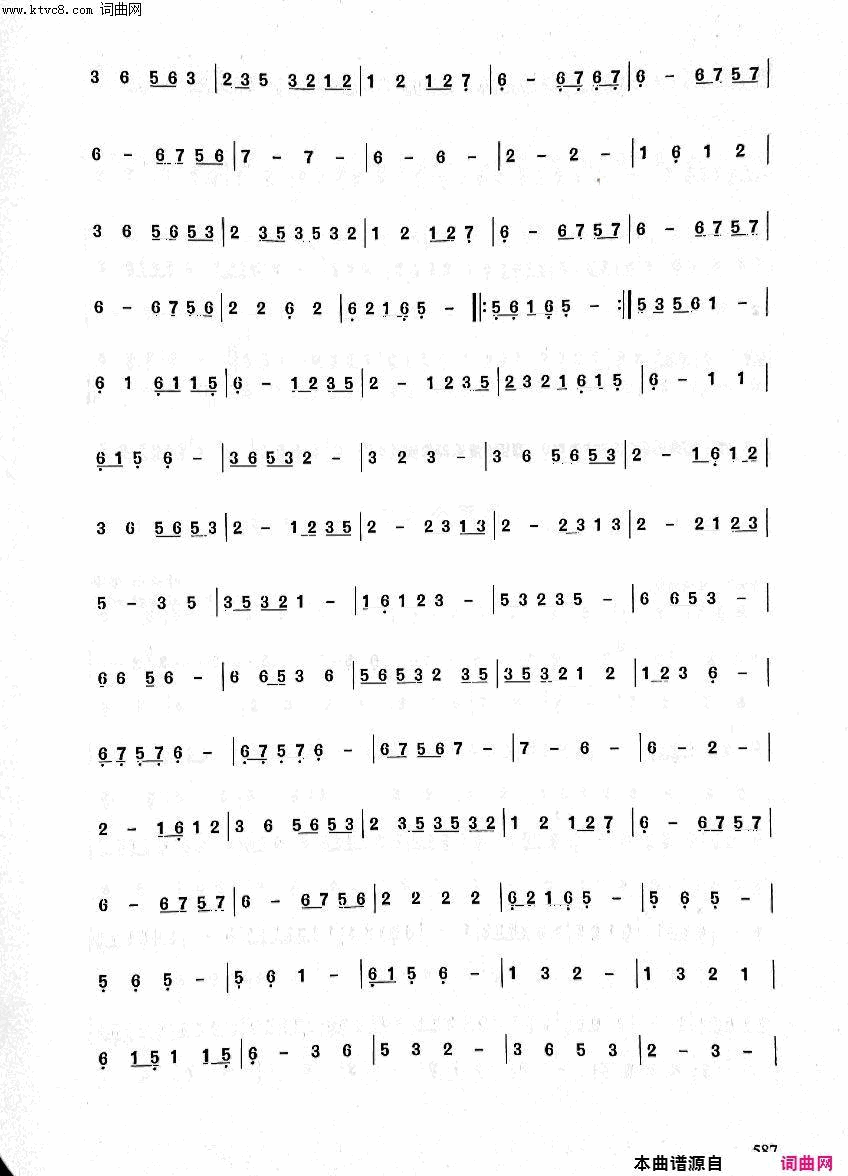 www.ktvc8.com 词曲网
3 6 563|235 3212|1 2 127|6 - 6767|6 - 6757|
6 - 6756|7 - 7 -|6 - 6 -|2 - 2 -|1 6 1 2|
3 6 5653|2 353532|1 2 127|6 - 6757|6 - 6757|
6 - 6756|2 2 6 2|62165 -‖:56165 -:‖53561 -|
6 1 6115|6 - 1235|2 - 1235|2321615|6 - 1 1|
615 6 -|36532 -|3 2 3 -|3 6 5653|2 - 1612|
3 6 5653|2 - 1235|2 - 2313|2 - 2313|2 - 2123|
5 - 3 5|35321 -|16123 -|53235 -|6 653 -|
66 56 -|6 653 6|56532 35|35321 2|123 6 -|
67576 -|67576 -|67567 -|7 - 6 -|6 - 2 -|
2 - 1612|3 6 5653|2 353532|1 2 127|6 - 6757|
6 - 6757|6 - 6756|2 2 2 2|62165 -|5 6 5 -|
5 6 5 -|5 6 1 -|615 6 -|1 3 2 -|1 3 2 1|
6 151 15|6 - 3 6|5 3 2 -|3 6 5 3|2 - 3 -|
587
本曲谱源自 词曲网